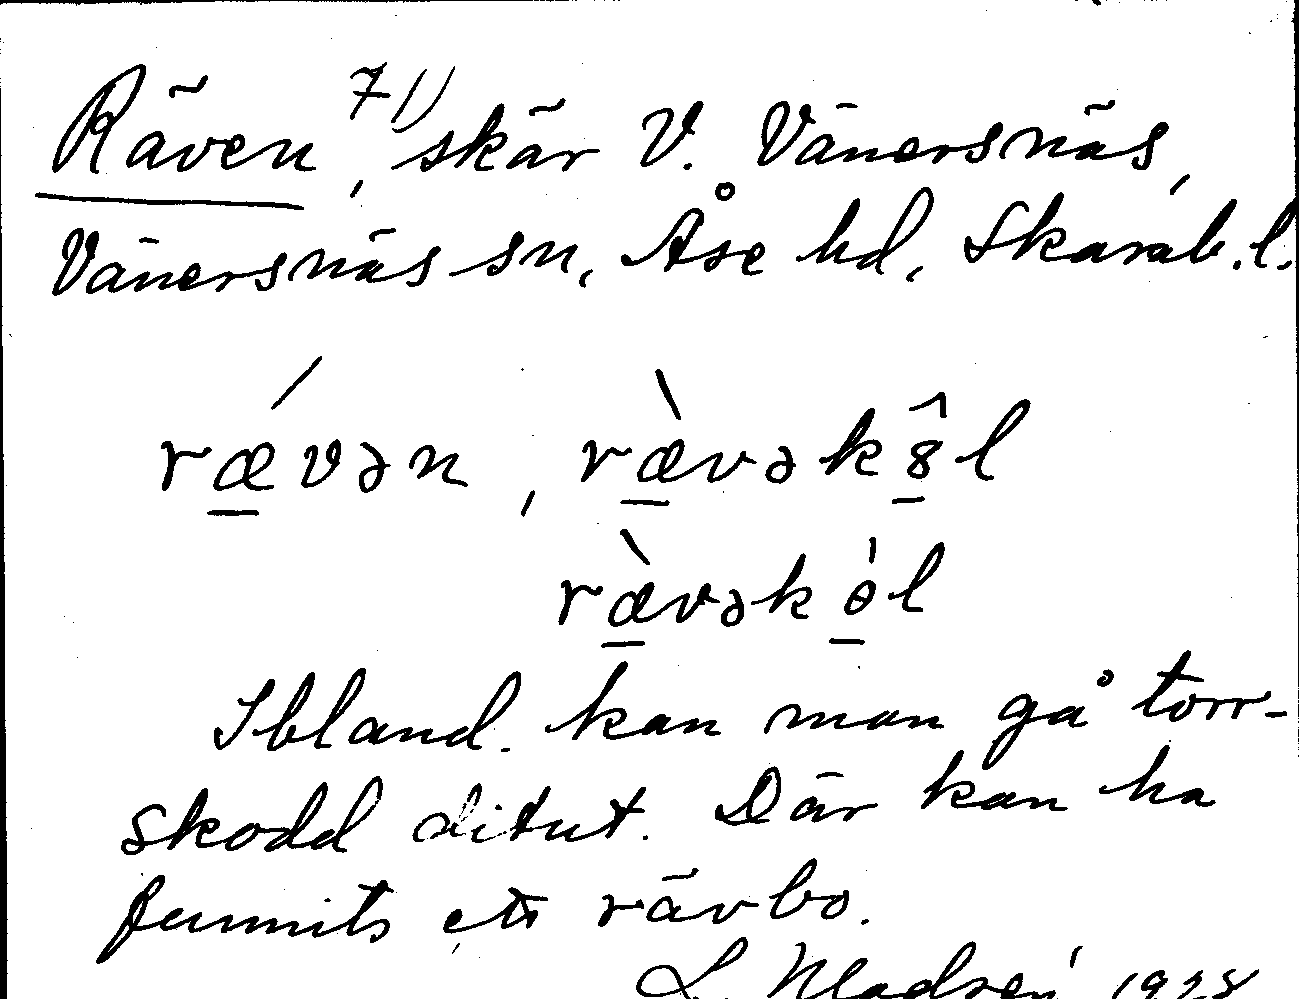 Räven 71), skär V. Vänersnäs,
Vänersnäs sn, Åse hd, Skarab. l.
rǽvən, ræ̀vəkôl
ræ̀vəkə̇l
Ibland kan man gå torr-
skodd ditut. Där kan ha
funnits ett rävbo.